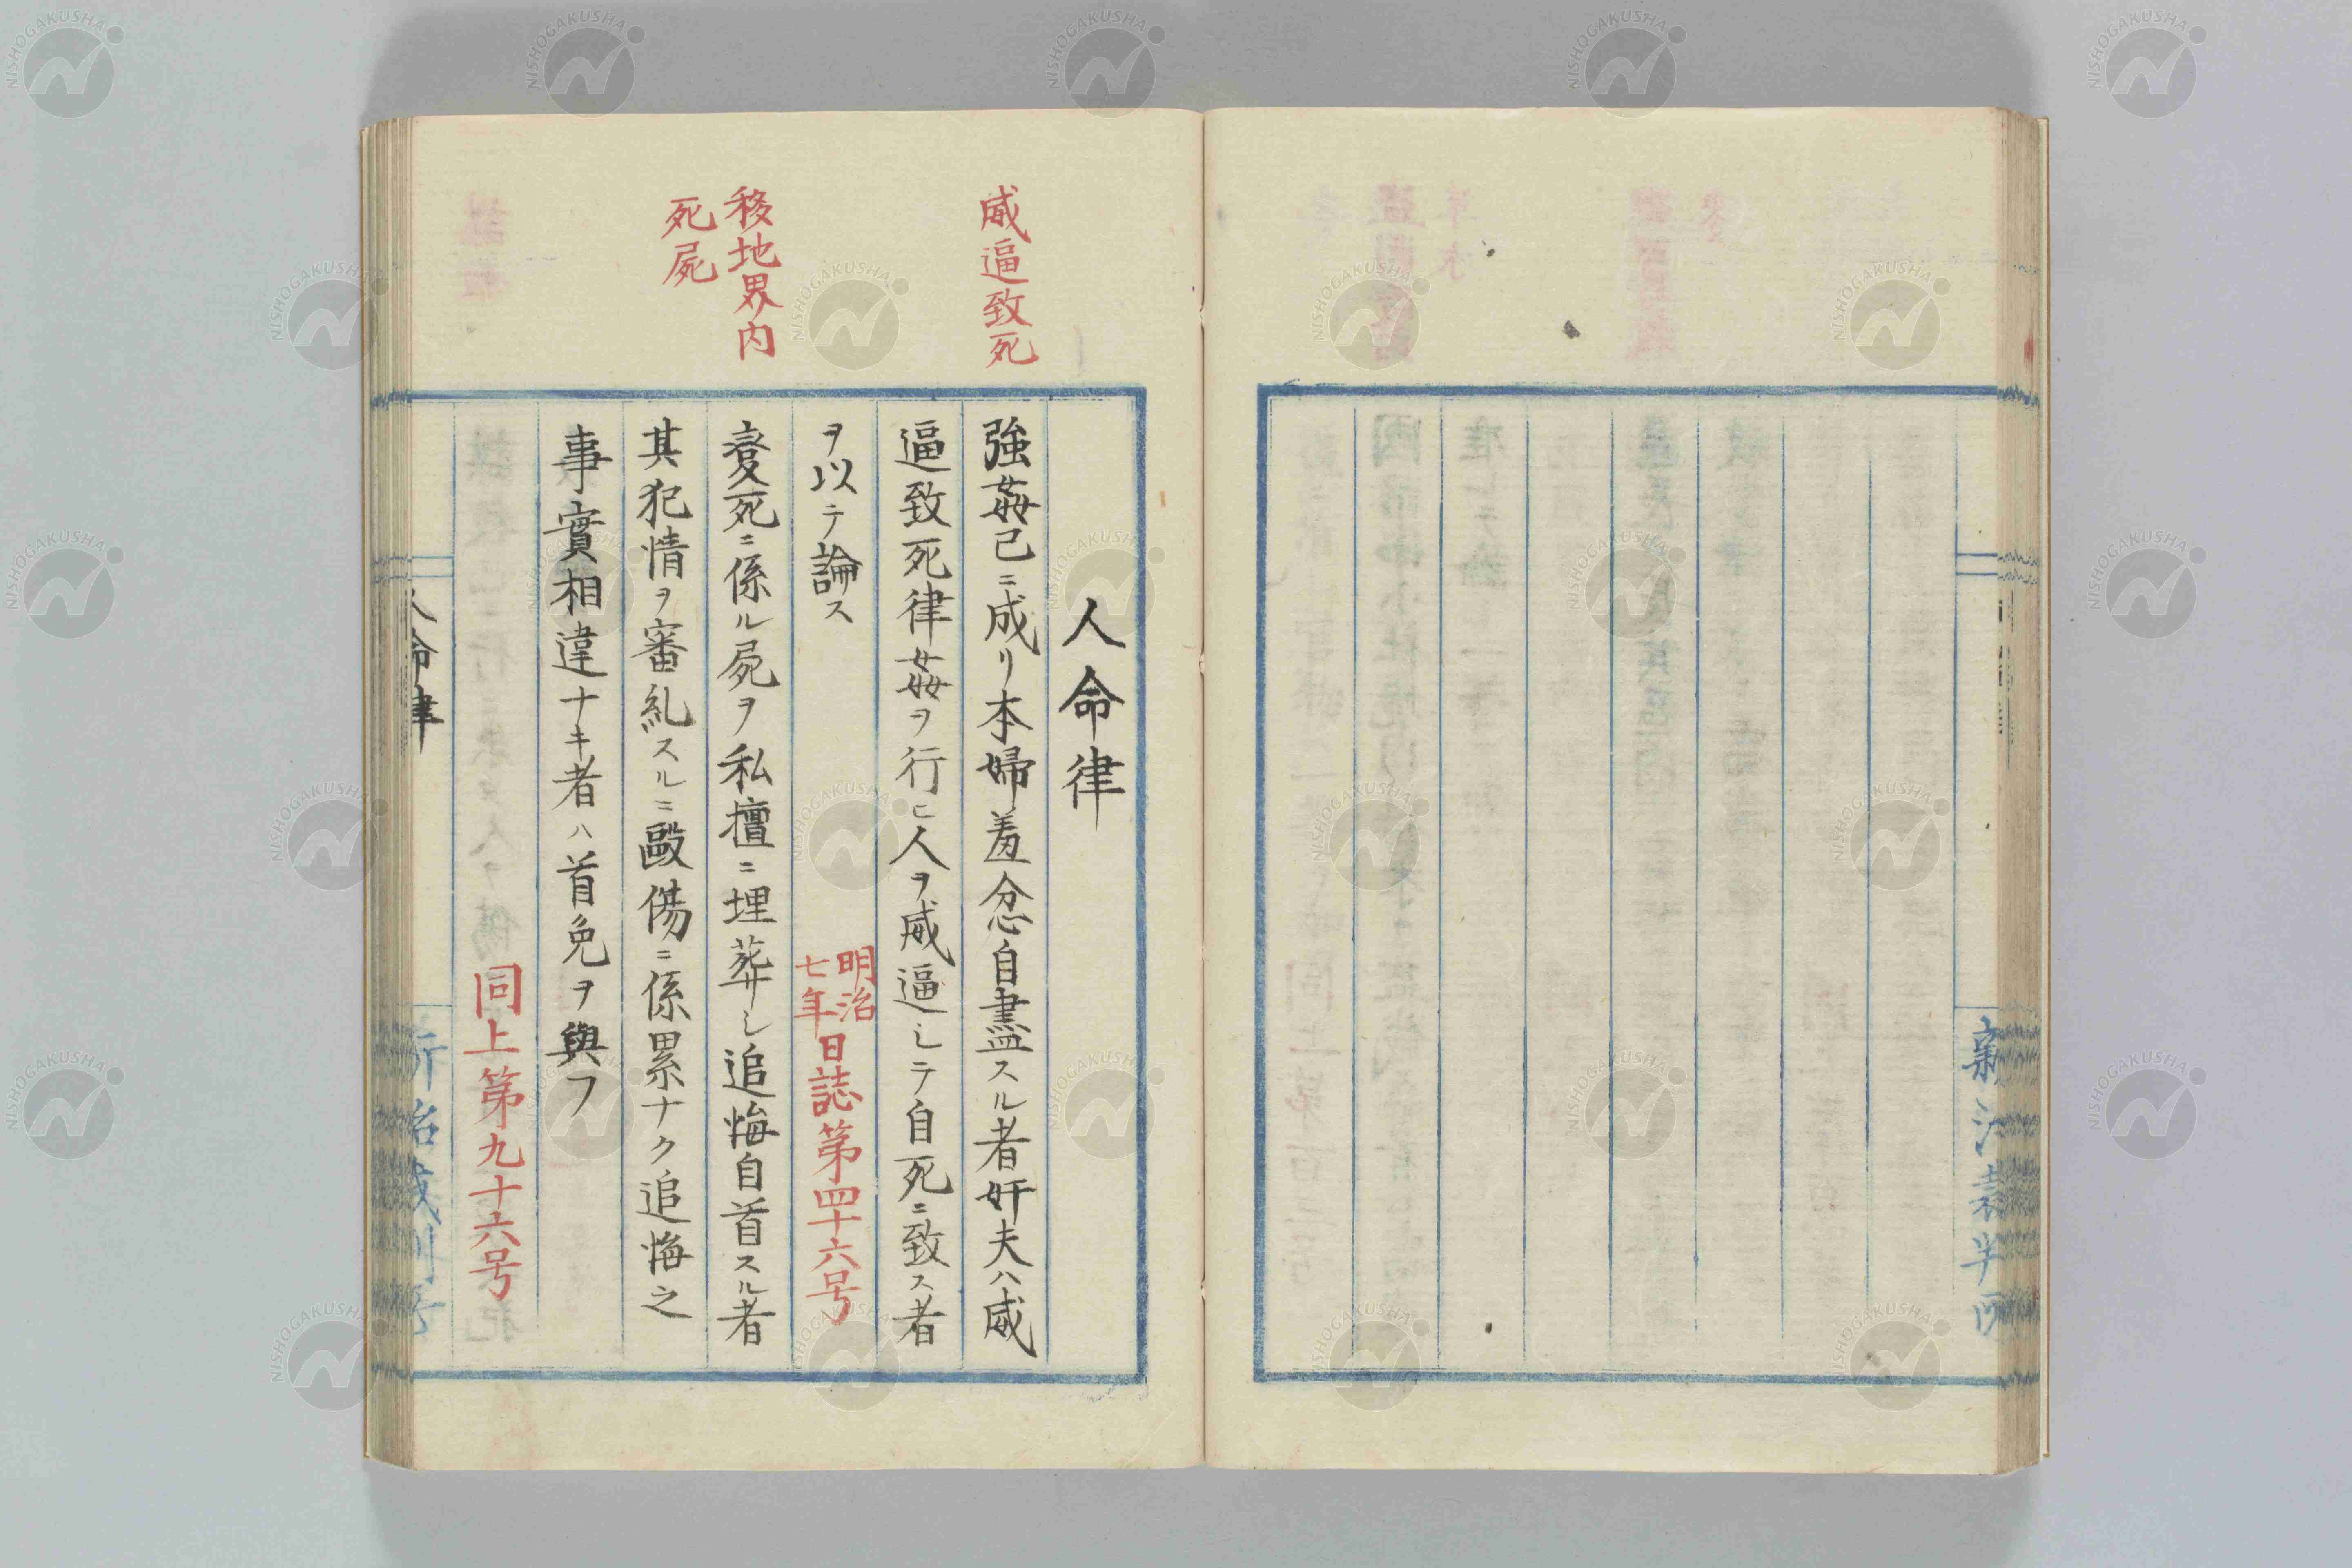 人命律
威逼致死
強姦已ニ成リ本婦羞忿自盡スル者奸夫ハ威
逼致死律姦ヲ行ヒ人ヲ威逼シテ自死ニ致ス者
ヲ以テ論ス
明治七年日誌第四十六号
移地界内
死屍
変死ニ係ル屍ヲ私擅ニ埋葬シ追悔自首スル者
其犯情ヲ審糺スルニ毆傷ニ係累ナク追悔之
事實相違ナキ者ハ首免ヲ與フ
同上第九十六号
人命律
NISHOGAKUSHA